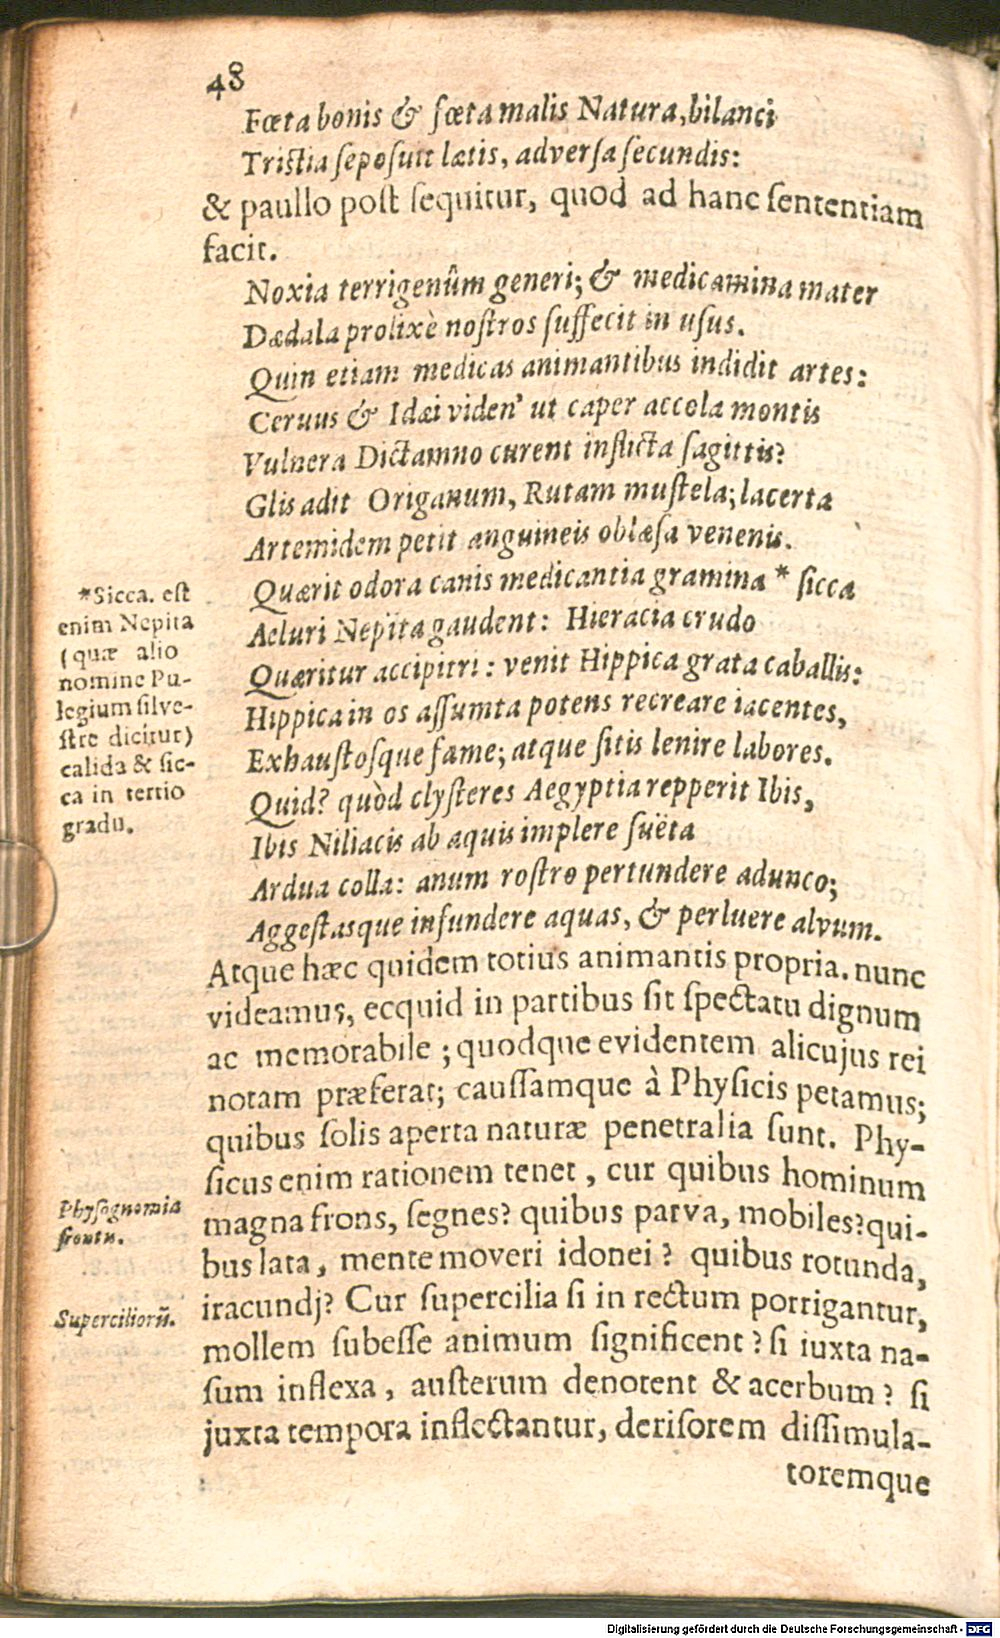 48
Fœta bonis & fœta malis Natura, bilanci
Tristia seposuit lætis, adversa secundis:
& paullo post sequitur, quod ad hanc sententiam
facit.
Noxia terrigenûm generi; & medicamina mater
Dædala prolixè nostros suffecit in usus.
Quin etiam medicas animantibus indidit artes:
Ceruus & Idæi viden' ut caper accola montis
Vulnera Dictamno curent inflicta sagittis?
Glis adit Origanum, Rutam mustela; lacerta
Artemidem petit anguineis oblæsa venenis.
Quærit odora canis medicantia gramina * sicca
Aeluri Nepita gaudent: Hieracia crudo
Quæritur accipitri: venit Hippica grata caballis:
Hippica in os assumta potens recreare iacentes,
Exhaustosque fame; atque sitis lenire labores.
Quid? quòd clysteres Aegyptia repperit Ibis,
Ibis Niliacis ab aquis implere suëta
Ardua colla: anum rostro pertundere adunco;
Aggestasque infundere aquas, & perluere alvum.
*Sicca. est
enim Nepita
(quæ alio
nomine Pu-
legium silve-
stre dicitur)
calida & sic-
ca in tertio
gradu.
Atque hæc quidem totius animantis propria. nunc
videamus, ecquid in partibus sit spectatu dignum
ac memorabile; quodque evidentem alicujus rei
notam præferat; caussamque à Physicis petamus;
quibus solis aperta naturæ penetralia sunt. Phy-
sicus enim rationem tenet, cur quibus hominum
magna frons, segnes? quibus parva, mobiles? qui-
bus lata, mente moveri idonei? quibus rotunda,
iracundj? Cur supercilia si in rectum porrigantur,
mollem subesse animum significent? si iuxta na-
sum inflexa, austerum denotent & acerbum? si
juxta tempora inflectantur, derisorem dissimula-
toremque
Physognomia
frontis.
Superciliorũ.
Digitalisierung gefördert durch die Deutsche Forschungsgemeinschaft - DFG